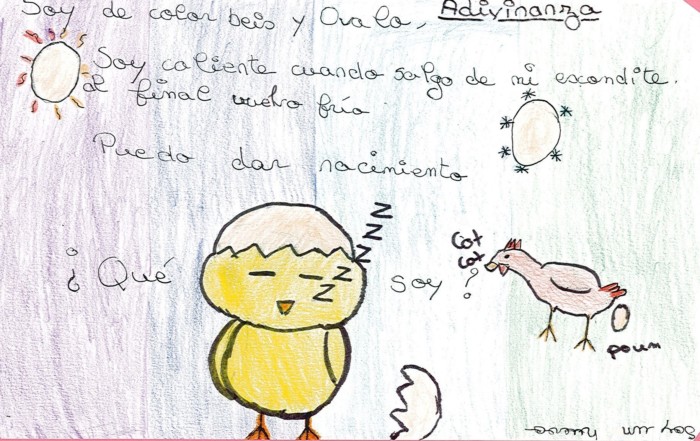 Adivinanza
Soy de color beis y Ovalo,
Soy caliente cuando salgo de mi escondite.
al final vuelvo frío
Puedo dar nacimiento
¿Qué soy?
z z z z z
Cot
cot
poum
Soy un huevo